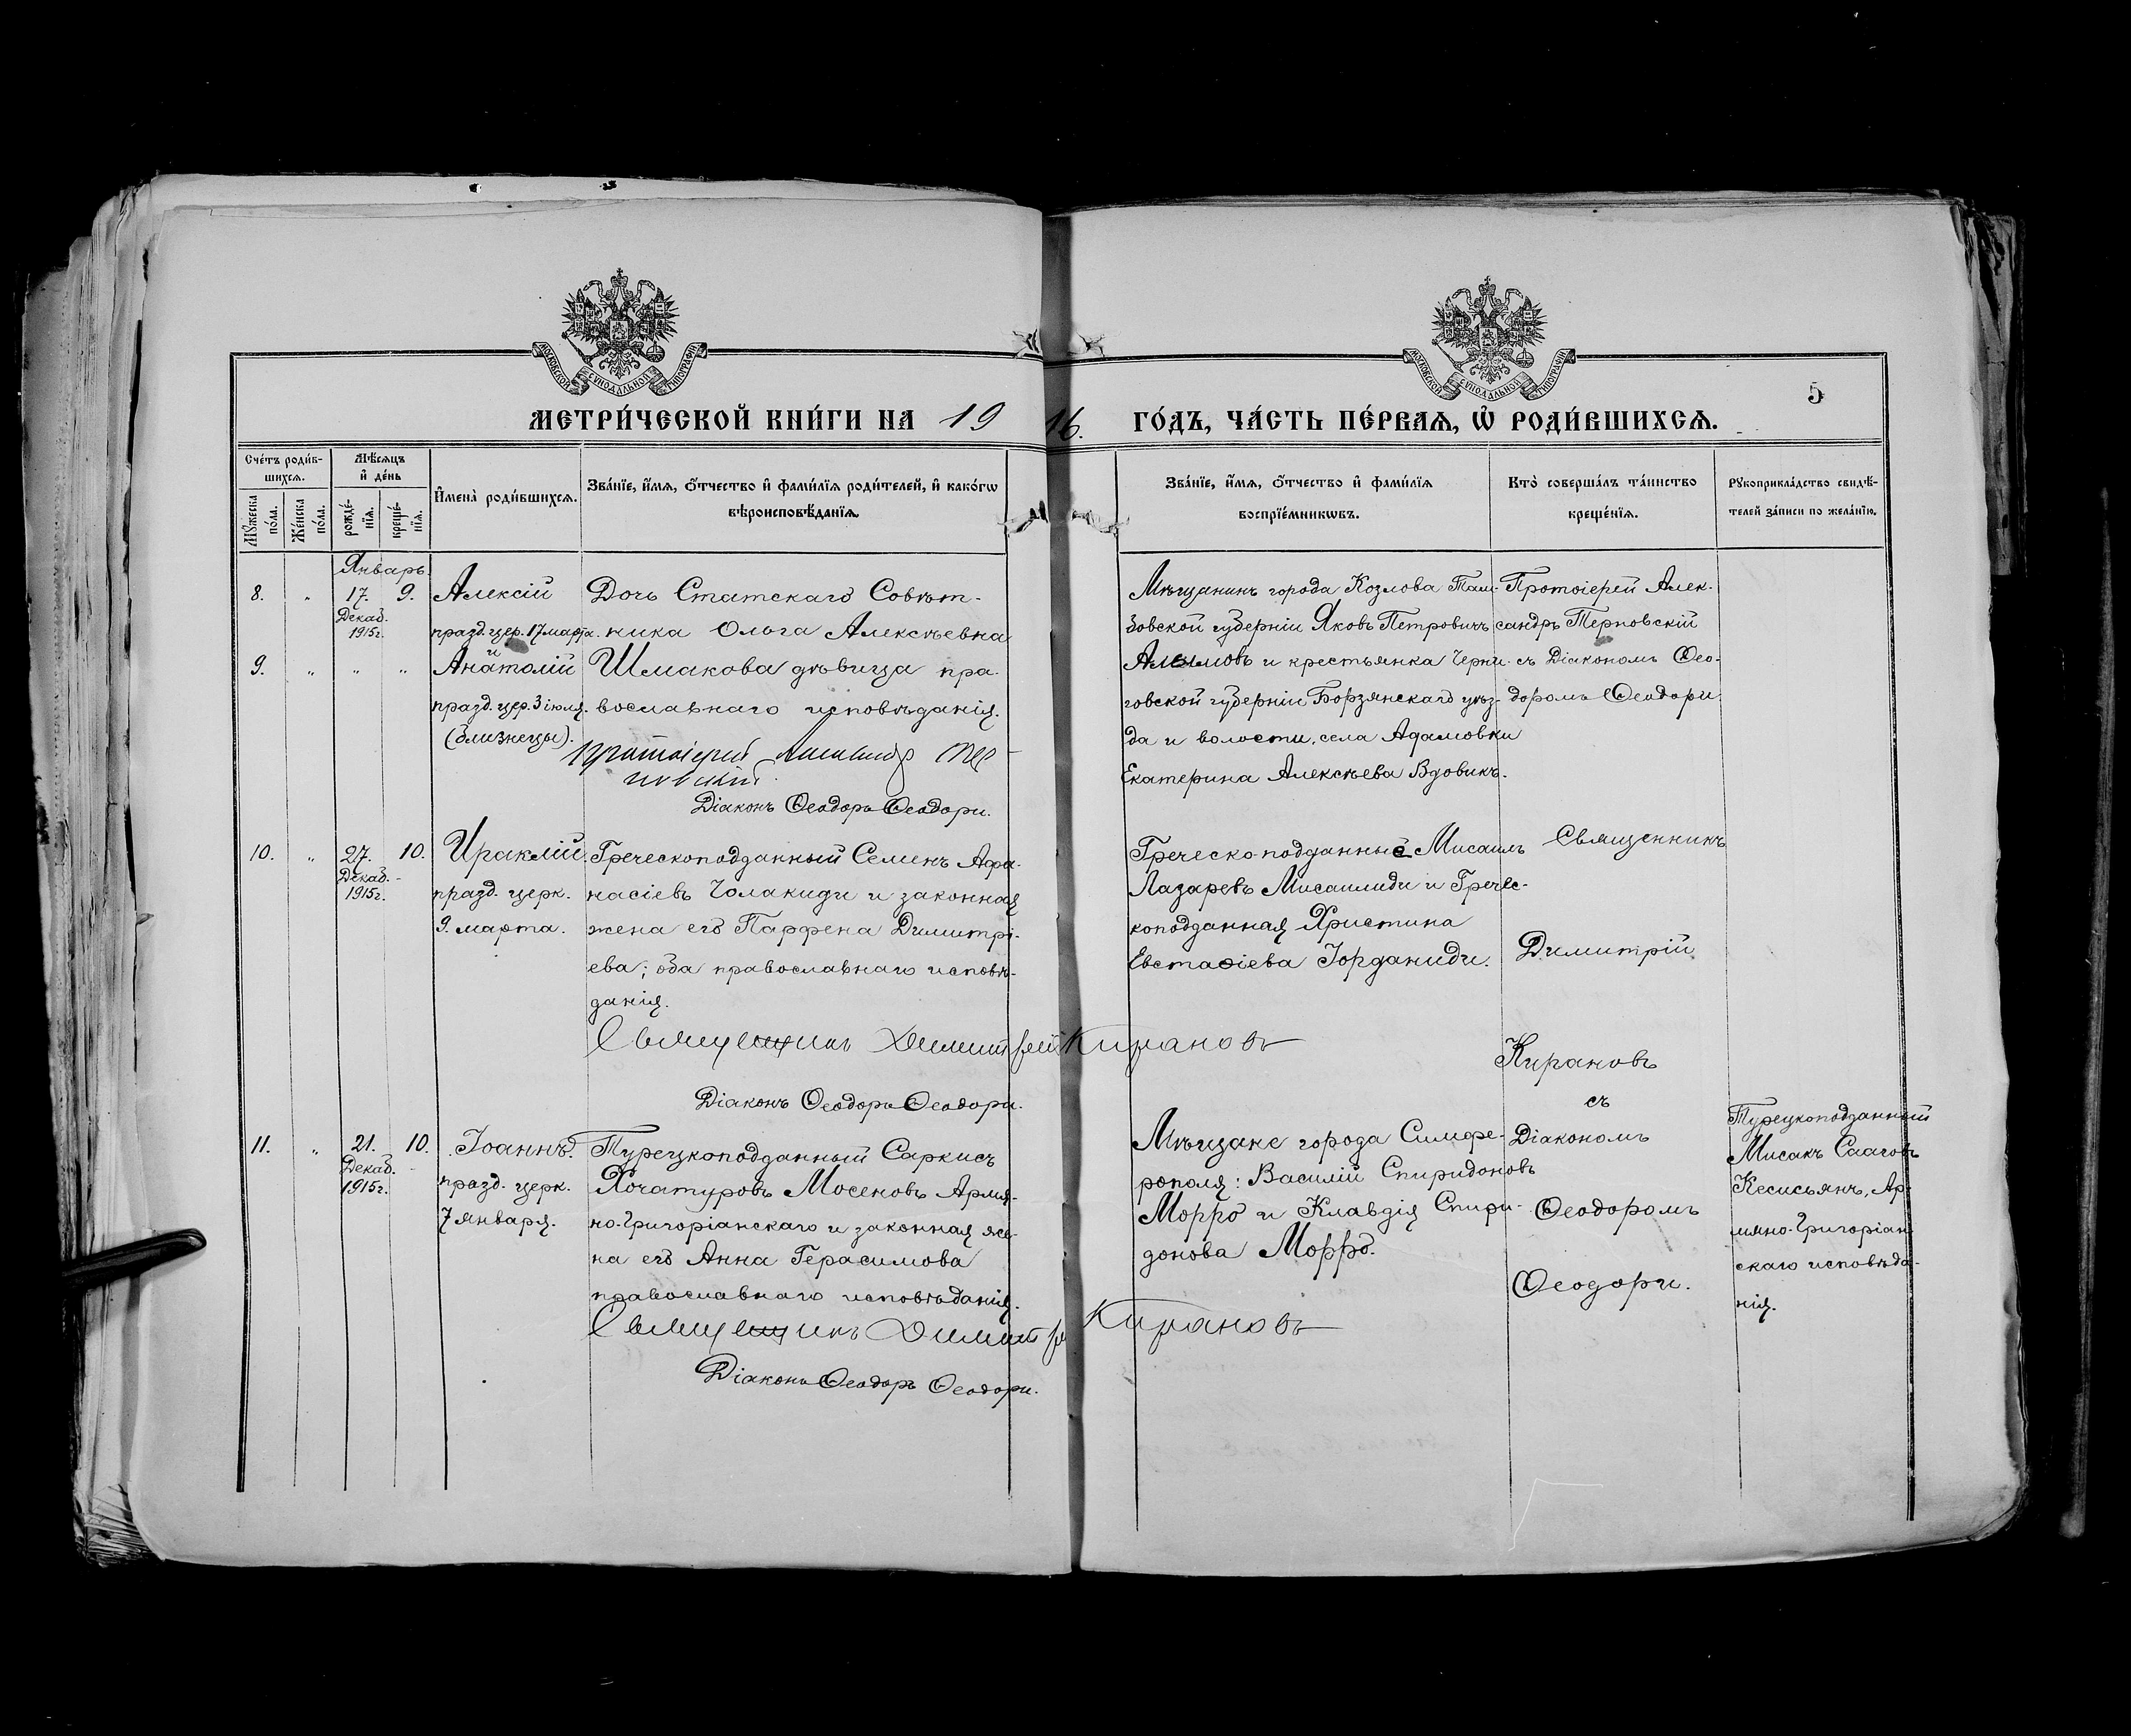 МОСКОВСКОЙ СУНОДАЛЬНОЙ ТИПОГРАФІИ
МОСКОВСКОЙ СУНОДАЛЬНОЙ ТИПОГРАФІИ
5
МЕТРИ́ЧЕСКОЙ КНИ́ГИ НА 1916. ГО́ДЪ, ЧА́СТЬ ПЕ́РВАѦ, Ѡ҆ РОДИ́ВШИХСѦ.
Сче́тъ роди́в-
шихсѧ.
Мѣ́сѧцъ
и҆ де́нь
Мꙋ́жеска по́ла.
Же́нска по́ла.
рожде́-
нїѧ.
креще́-
нїѧ.
И҆мена̀ роди́вшихсѧ.
Зва́нїе, и҆́мѧ, ѻ҆́тчество и҆ фами́лїѧ роди́телей, и҆ како́гѡ
вѣроисповѣ́данїѧ.
Зва́нїе, и҆́мѧ, ѻ҆́тчество и҆ фами́лїѧ
воспрїе́мникѡвъ.
Кто̀ соверша́лъ та́инство
креще́нїѧ.
Рꙋкоприкла́дство свидѣ́-
телей за́писи по жела́нїю.
Январь.
8. " 17. 9.
Декаб.
1915г.
Алексій
празд. цер. 17 марта.
и
9. " " "
Анатолій
празд. цер. 3 іюля.
(близнецы).
Дочь Статскаго Совѣт-
ника Ольга Алексѣевна
Шмакова дѣвица пра-
вославнаго исповѣданія.
Протоіерей Александр Тер-
новскій.
Діаконъ Ѳеодоръ Ѳеодори.
Мѣщанинъ города Козлова Там-
бовской губерніи Яковъ Петровичъ
и крестьянка Черни-
говской губерніи Борзянскаго уѣз-
да и волости, села Адамовки
Екатерина Алексѣева Вдовикъ.
Протоіерей Алек-
сандръ Терновскій
съ Діакономъ Ѳео-
доромъ Ѳеодори
10. " 27. 10.
Декаб.
1915г.
Ираклій
празд. церк.
9. марта.
Греческоподданный Семенъ Афа-
насіевъ Чолакиди и законная
жена его Парфена Димитрі-
ева; оба православнаго исповѣ-
данія.
Священникъ Димитрій Кирановъ
Діаконъ Ѳеодоръ Ѳеодори.
Греческо-подданные Мисаилъ
Лазаревъ Мисаилиди и Гречес-
коподданная Христина
Евстаѳіева Іорданиди.
Священникъ
Димитрій
Кирановъ
съ
Діакономъ
Ѳеодоромъ
Ѳеодори.
11. " 21. 10.
Декаб.
1915г.
Іоаннъ.
празд. церк.
7 января.
Турецкоподданный Саркисъ
Хочатуровъ Мосеновъ Армя-
но-Григоріанскаго и законная же-
на его Анна Герасимова
православнаго исповѣданія.
Священникъ Димитр Кирановъ
Діаконъ Ѳеодоръ Ѳеодори.
Мѣщане города Симфе-
рополя: Василій Спиридоновъ
Морро и Клавдія Спири-
донова Морро.
Турецкоподданный
Мисакъ Сааговъ
Кесисьянъ, Ар-
мяно-Григоріан-
скаго исповѣда-
нія.